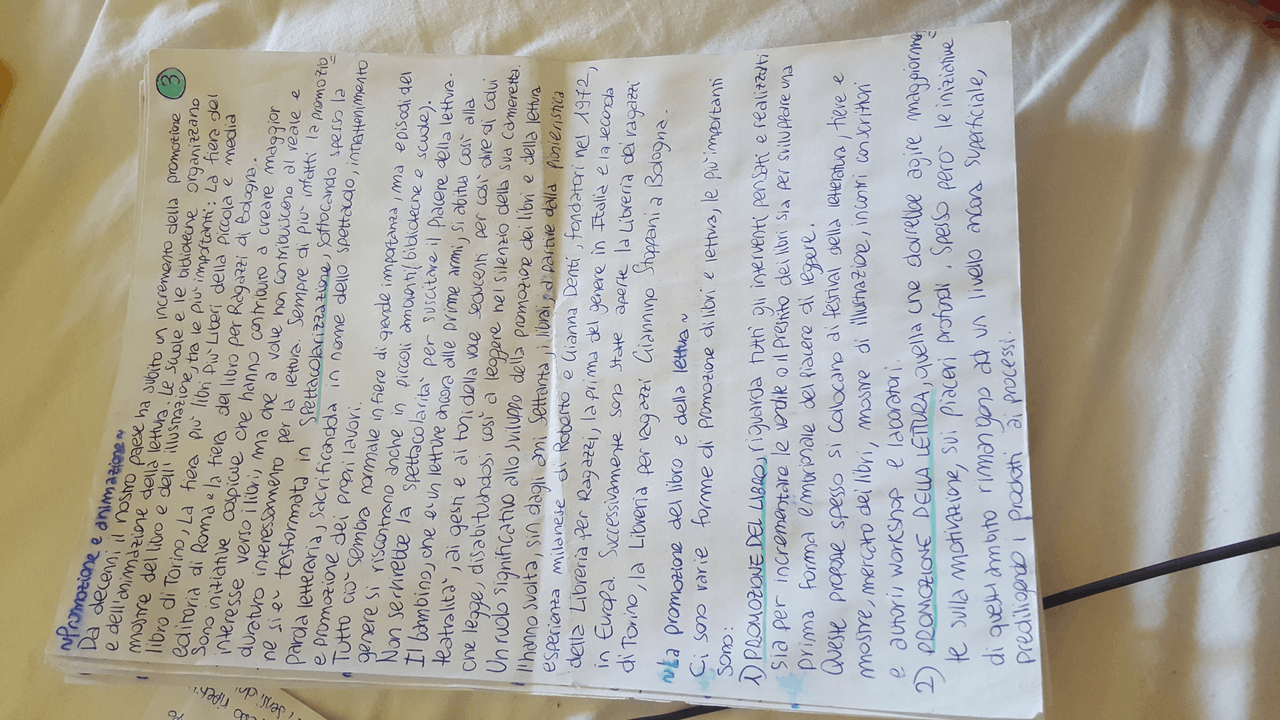 3
~Promozione e animazione~
Da decenni il nostro paese ha subito un incremento della promozione
e dell'animazione della lettura. Le scuole e le biblioteche organizzano
mostre del libro e dell'illustrazione, tra le più importanti: La fiera del
libro di Torino, La fiera più libri Più Liberi della piccola e media
editoria di Roma e la fiera del libro per Ragazzi di Bologna.
Sono iniziative cospicue che hanno contribuito a creare maggior
interesse verso i libri, ma che a volte non contribuiscono al reale e
duraturo interessamento per la lettura. Sempre di più infatti la promozio
ne si e' trasformata in Spettacolarizzazione, soffocando spesso la
parola letteraria, sacrificandola in nome dello spettacolo, intrattenimento
e promozione dei propri lavori.
Tutto ciò sembra normale in fiere di grande importanza, ma episodi del
genere si riscontrano anche in piccoli ambienti (biblioteche e scuole).
Non servirebbe la spettacolarita' per suscitare il piacere della lettura.
Il bambino, che e' un lettore ancora alle prime armi, si abitua così alla
teatralita', ai gesti e ai toni della voce seducenti per così dire di colui
che legge, disabituandosi così a leggere nel silenzio della sua cameretta.
Un ruolo significativo allo sviluppo della promozione dei libri e della lettura
l'hanno svolta, sin dagli anni settanta, i librai, a partire dalla pionieristica
esperienza milanese di Roberto e Gianna Denti, fondatori nel 1972,
della Libreria per Ragazzi, la prima del genere in Italia e la seconda
in Europa. Successivamente sono state aperte la Libreria dei ragazzi
di Torino, la Libreria per ragazzi Giannino Stoppani a Bologna.
~La promozione del libro e della lettura~
Ci sono varie forme di promozione di libri e lettura, le più importanti
sono:
1) PROMOZIONE DEL LIBRO, riguarda tutti gli interventi pensati e realizzati
sia per incrementare le vendite o il prestito dei libri sia per sviluppare una
prima forma emozionale del piacere di leggere.
Queste proposte spesso si collocano di festival della letteratura, fiere e
mostre, mercato dei libri, mostre di illustrazione, incontri con scrittori
e autori, workshop e laboratori.
2) PROMOZIONE DELLA LETTURA, quella che dovrebbe agire maggiormen=
te sulla motivazione, sui piaceri profondi. Spesso però le iniziative
di quest'ambito rimangono ad un livello ancora superficiale,
prediligendo i prodotti ai processi.